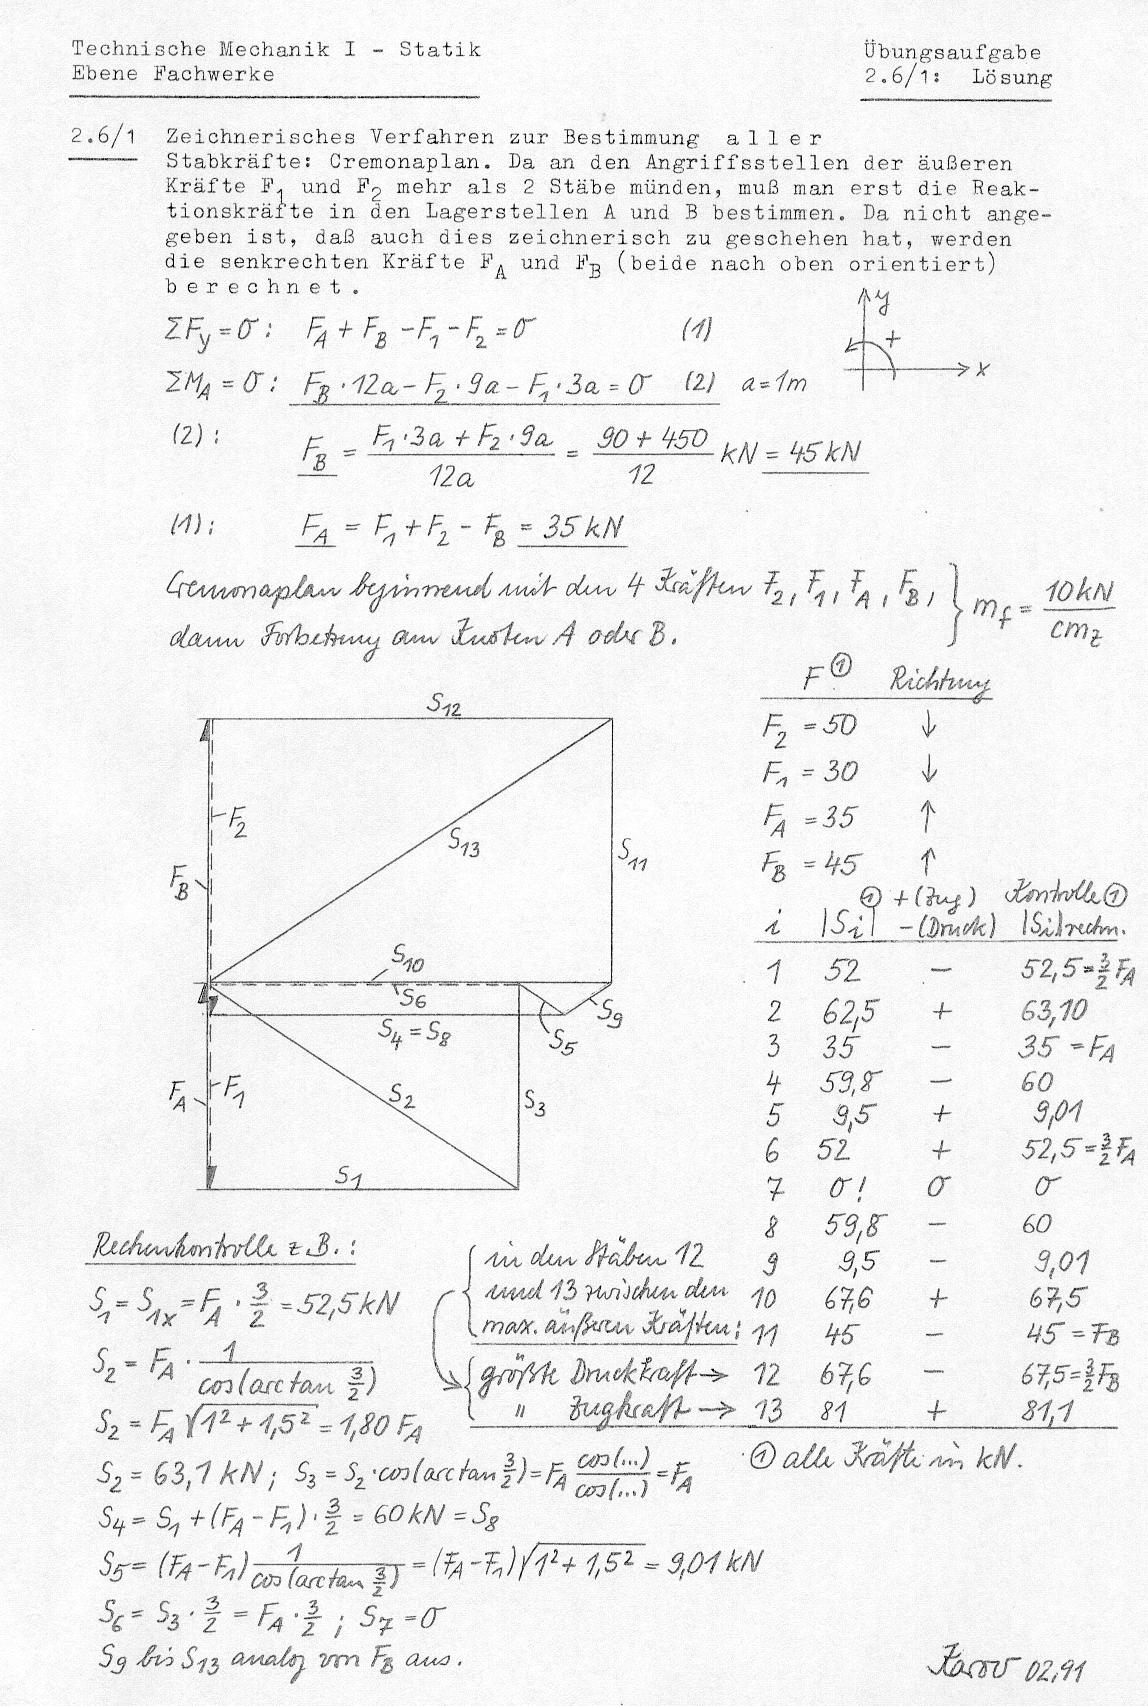 Technische Mechanik I - Statik
Ebene Fachwerke
Übungsaufgabe
2.6/1: Lösung
2.6/1 Zeichnerisches Verfahren zur Bestimmung a l l e r
Stabkräfte: Cremonaplan. Da an den Angriffsstellen der äußeren
Kräfte F₁ und F₂ mehr als 2 Stäbe münden, muß man erst die Reak-
tionskräfte in den Lagerstellen A und B bestimmen. Da nicht ange-
geben ist, daß auch dies zeichnerisch zu geschehen hat, werden
die senkrechten Kräfte F_A und F_B (beide nach oben orientiert)
b e r e c h n e t .
ΣF_y = 0: F_A + F_B - F₁ - F₂ = 0 (1)
y
+
x
ΣM_A = 0: F_B · 12a - F₂ · 9a - F₁ · 3a = 0 (2) a = 1m
(2): F_B = (F₁ · 3a + F₂ · 9a) / 12a = (90 + 450) / 12 kN = 45 kN
(1): F_A = F₁ + F₂ - F_B = 35 kN
Cremonaplan beginnend mit den 4 Kräften F₂, F₁, F_A, F_B, } m_f = 10 kN / cm_z
dann Fortsetzung am Knoten A oder B.
F ① Richtung
F₂ = 50 ↓
F₁ = 30 ↓
F_A = 35 ↑
F_B = 45 ↑
S₁₂
F₂
S₁₃
S₁₁
F_B
S₁₀
S₆
S₉
S₄ = S₈
S₅
F_A
F₁
S₂
S₃
S₁
① +(Zug) Kontrolle ①
i |S_i| -(Druck) |Si|rechn.
1 52 - 52,5 = 3/2 F_A
2 62,5 + 63,10
3 35 - 35 = F_A
4 59,8 - 60
5 9,5 + 9,01
6 52 + 52,5 = 3/2 F_A
7 0! 0 0
8 59,8 - 60
9 9,5 - 9,01
10 67,6 + 67,5
11 45 - 45 = F_B
12 67,6 - 67,5 = 3/2 F_B
13 81 + 81,1
① alle Kräfte in kN.
in den Stäben 12
und 13 zwischen den
max. äußeren Kräften:
größte Druckkraft →
" Zugkraft →
Rechenkontrolle z.B.:
S₁ = S₁ₓ = F_A · 3/2 = 52,5 kN
S₂ = F_A · 1 / cos(arctan 3/2)
S₂ = F_A √(1² + 1,5²) = 1,80 F_A
S₂ = 63,1 kN; S₃ = S₂ · cos(arctan 3/2) = F_A cos(...) / cos(...) = F_A
S₄ = S₁ + (F_A - F₁) · 3/2 = 60 kN = S₈
S₅ = (F_A - F₁) 1 / cos(arctan 3/2) = (F_A - F₁) √(1² + 1,5²) = 9,01 kN
S₆ = S₃ · 3/2 = F_A · 3/2 ; S₇ = 0
S₉ bis S₁₃ analog von F_B aus.
02,91